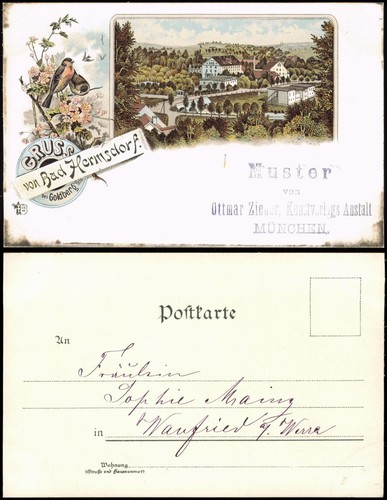 GRUSS
von Bad Hermsdorf.
bei Goldberg
Muster
von
Ottmar Zieher, Kunstverlags-Anstalt
MÜNCHEN.
Postkarte
An
Fräulein
Sophie Mainz
in Wanfried a/ Werra
Wohnung
(Straße und Hausnummer)